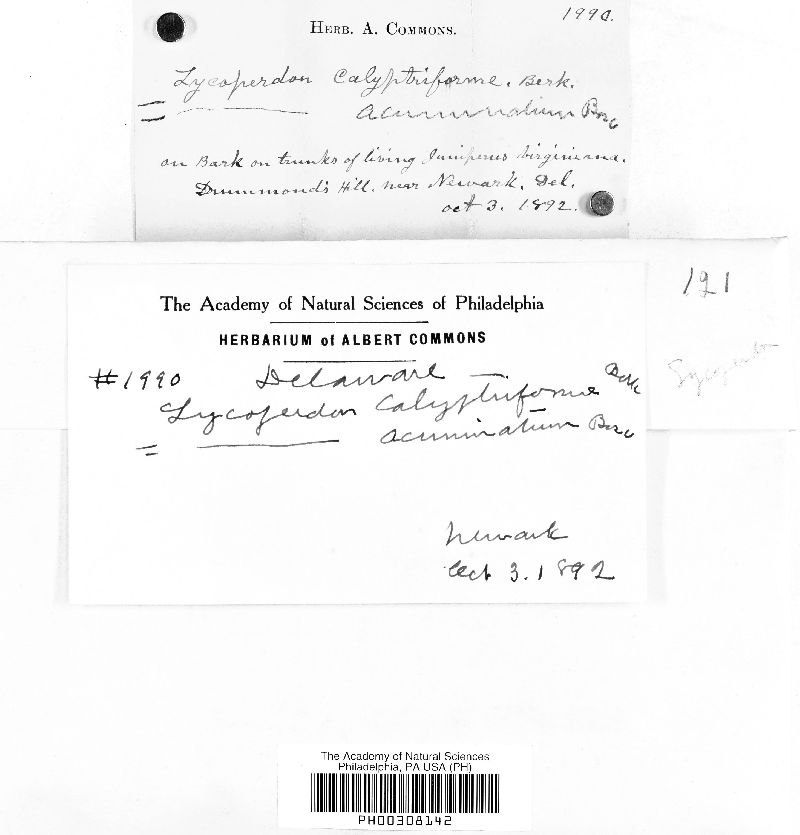 1990.
HERB. A. COMMONS.
Lycoperdon Calyptriforme. Berk.
= ——— acuminatum Bosc
on Bark on trunks of living Juniperus virginiana.
Drummond's Hill. near Newark. Del.
oct 3. 1892.
121
Lycoperdon
The Academy of Natural Sciences of Philadelphia
HERBARIUM of ALBERT COMMONS
#1990 Delaware —
Lycoperdon Calyptriforme Berk
= ——— acuminatum Bosc
Newark
Oct 3. 1892
The Academy of Natural Sciences
Philadelphia, PA USA (PH)
PH00308142